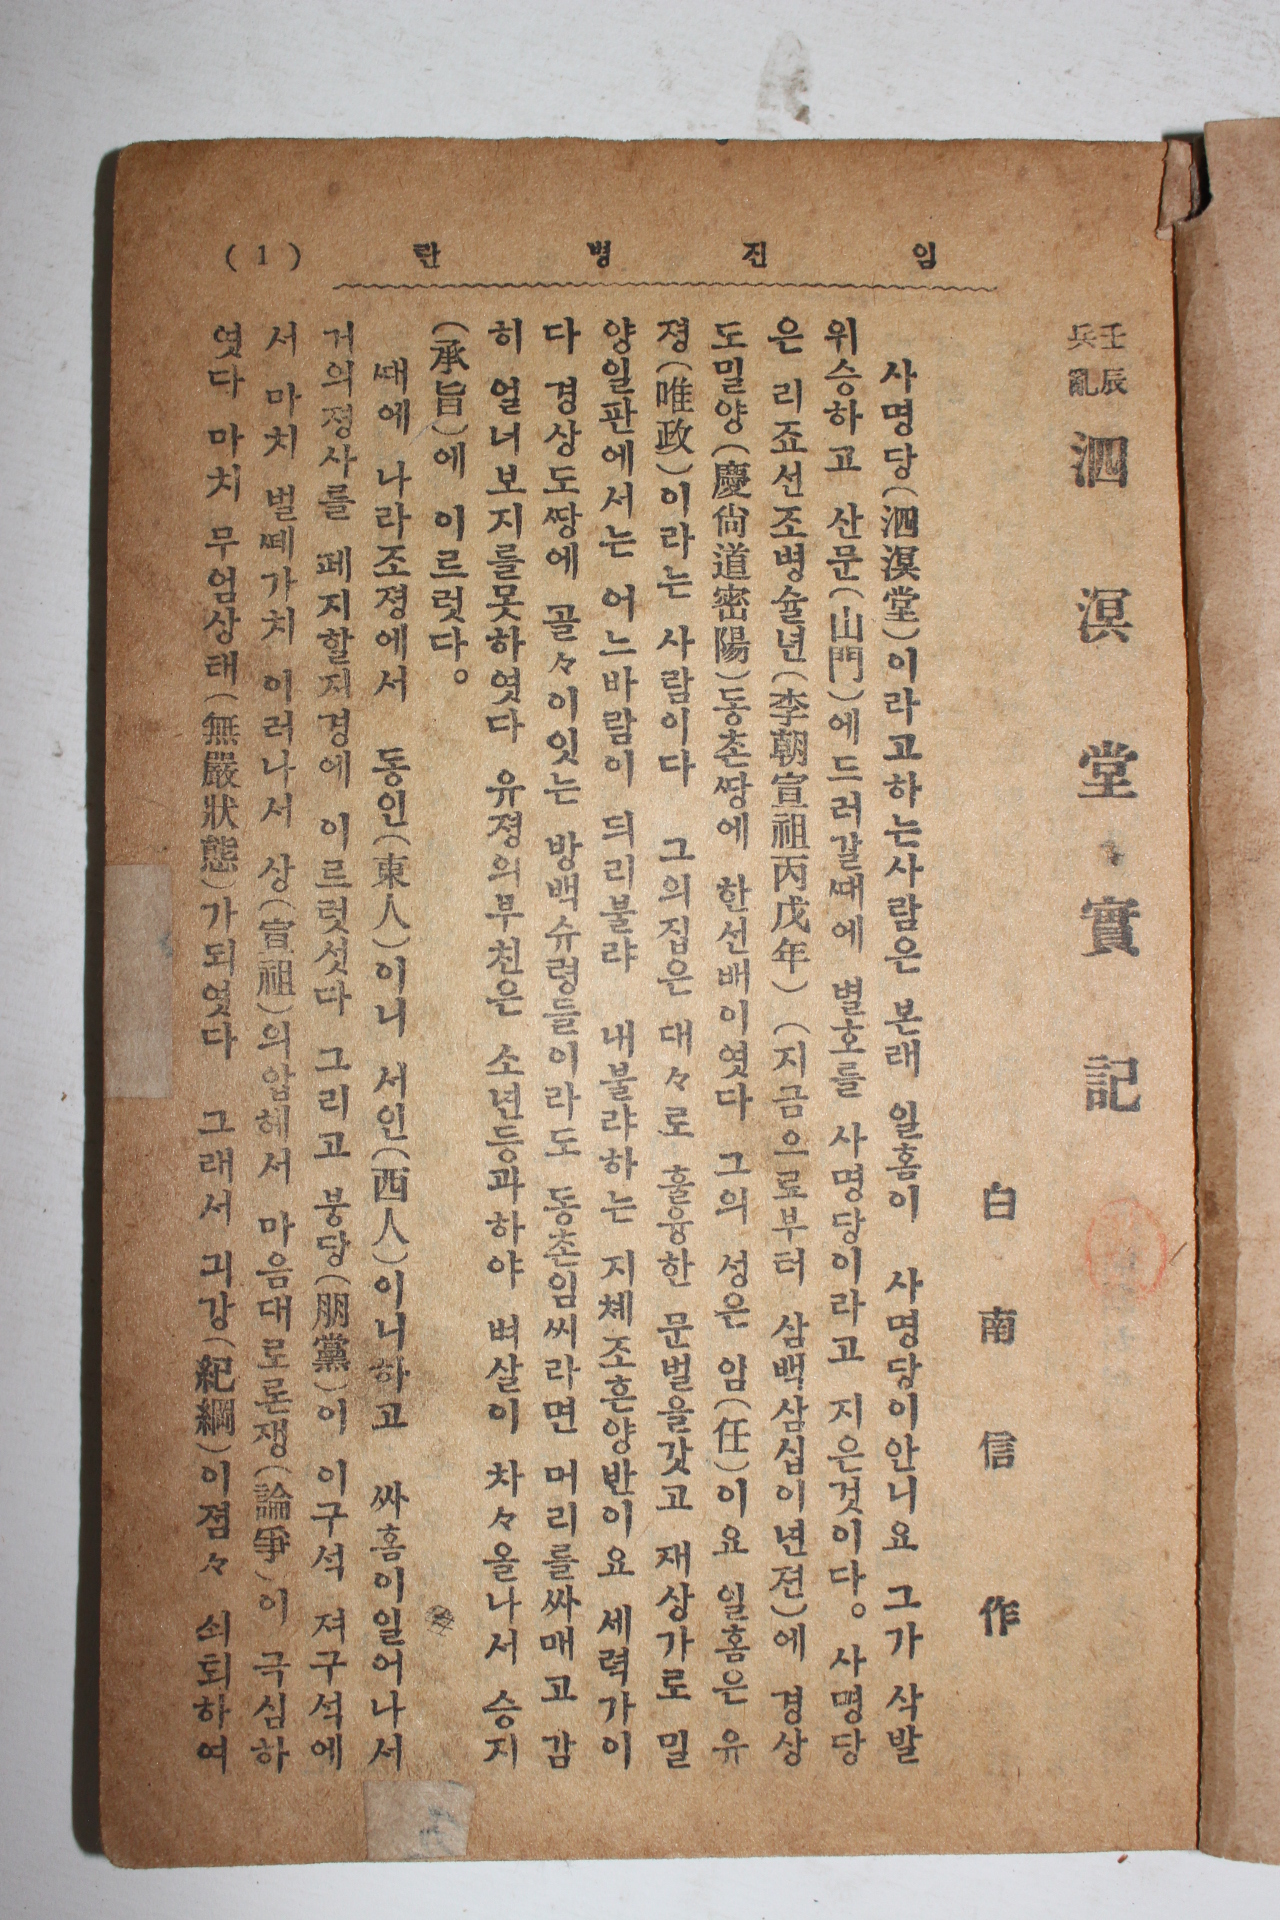 임진병란 (1)
壬辰兵亂
泗溟堂實記
白南信 作
사명당(泗溟堂)이라고하는사람은 본래 일홈이 사명당이안니요 그가 삭발
위승하고 산문(山門)에드러갈때에 별호를 사명당이라고 지은것이다。 사명당
은 리죠선조병슐년(李朝宣祖丙戊年) (지금으로부터 삼백삼십이년젼)에 경상
도밀양(慶尙道密陽)동촌땅에 한선배이엿다 그의 성은 암(任)이요 일홈은 유
졍(唯政)이라는 사람이다 그의집은 대々로 훌륭한 문벌을갓고 재상가로 밀
양일판에서는 어느바람이 듸리불랴 내불랴하는 지체조흔양반이요 세력가이
다 경상도땅에 골々이잇는 방백슈령들이라도 동촌임씨라면 머리를싸매고 감
히 얼너보지를못하엿다 유졍의부친은 소년등과하야 벼살이 차々올나서 승지
(承旨)에 이르럿다。
때에 나라조졍에서 동인(東人)이니 서인(西人)이니하고 싸홈이일어나서
거의졍사를 폐지할지경에 이르럿섯다 그리고 붕당(朋黨)이 이구석 져구석에
서 마치 벌떼가치 이러나서 상(宣祖)의압헤서 마음대로론쟁(論爭)이 극심하
엿다 마치 무엄상태(無嚴狀態)가되엿다 그래서 긔강(紀綱)이졈々 쇠퇴하여